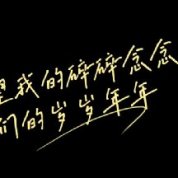 是我的碎碎念念
们的岁岁年年